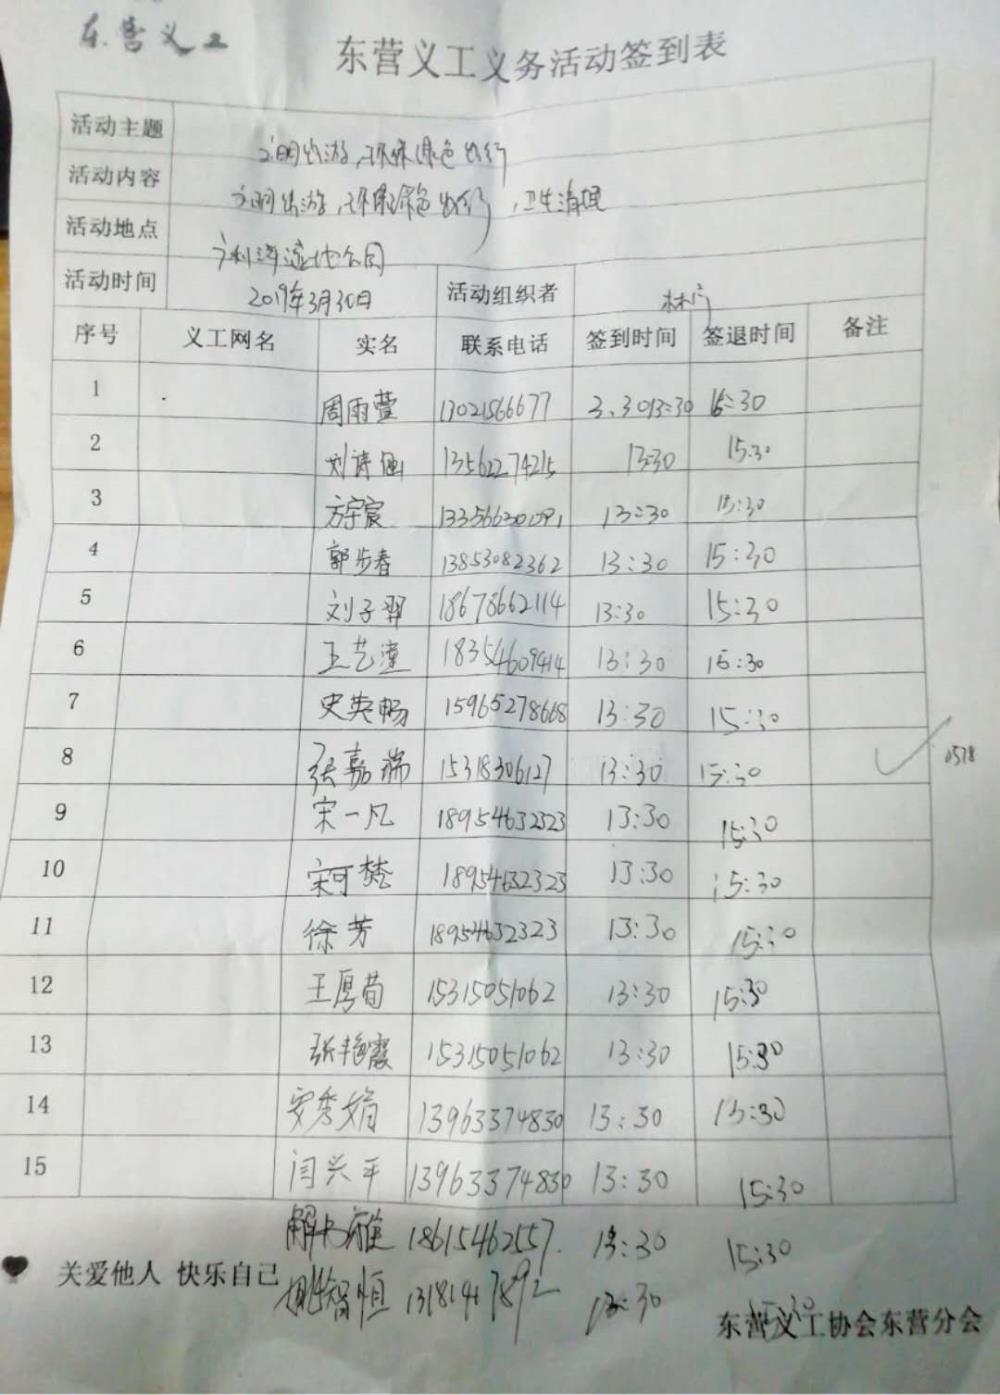 东.营义工
东营义工义务活动签到表
活动主题 文明出游,环保绿色出行
活动内容 文明出游,环保绿色出行,卫生清理
活动地点 公园
活动时间 2019年3月30日 活动组织者
序号 义工网名 实名 联系电话 签到时间 签退时间 备注
1 周雨萱 13021566677 3.30 13:30 15:30
2 刘诗 13562274215 13:30 15:30
3 方宇宸 13:30 15:30
4 郭步春 13853082362 13:30 15:30
5 刘子羿 18678662114 13:30 15:30
6 王艺潼 18354609414 13:30 15:30
7 史英畅 15965278668 13:30 15:30
8 张嘉瑞 15318306127 13:30 15:30 ✓ 0578
9 宋一凡 18954632323 13:30 15:30
10 宋可 18954632323 13:30 15:30
11 徐芳 18954632323 13:30 15:30
12 王厚荀 15315051062 13:30 15:30
13 张艳霞 15315051062 13:30 15:30
14 安秀娟 13963374830 13:30 15:30
15 闫兴平 13963374830 13:30 15:30
18615462557. 13:30 15:30
关爱他人 快乐自己
智恒 13181417892 13:30 15:30
东营义工协会东营分会